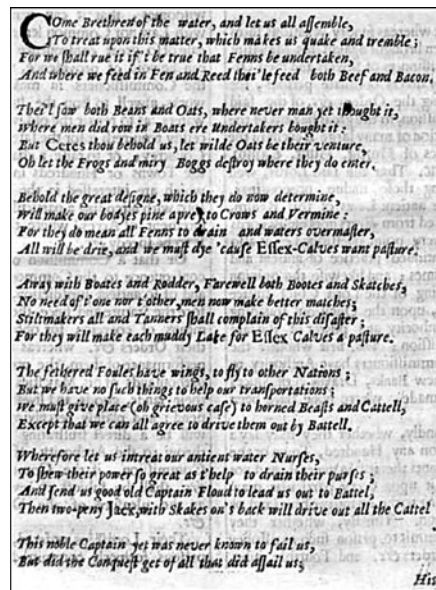 COme Brethren of the water, and let us all aſſemble,
To treat upon this matter, which makes us quake and tremble;
For we ſhall rue it if 't be true that Fenns be undertaken,
And where we feed in Fen and Reed thei'le feed both Beef and Bacon.
Thei'l ſow both Beans and Oats, where never man yet thought it,
Where men did row in Boats ere Undertakers bought it:
But Ceres thou behold us, let wilde Oats be their venture,
Oh let the Frogs and miry Boggs deſtroy where they do enter.
Behold the great deſigne, which they do now determine,
Will make our bodyes pine a prey to Crows and Vermine:
For they do mean all Fenns to drain and waters overmaſter,
All will be drie, and we muſt dye 'cauſe Eſſex-Calves want paſture.
Away with Boates and Rodder, Farewell both Bootes and Skatches,
No need of t'one nor t'other, men now make better matches;
Stiltmakers all and Tanners ſhall complain of this diſaſter;
For they will make each muddy Lake for Eſſex Calves a paſture.
The fethered Foules have wings, to fly to other Nations;
But we have no ſuch things to help our tranſportations;
We muſt give place (oh grievous caſe) to horned Beaſts and Cattell,
Except that we can all agree to drive them out by Battell.
Wherefore let us intreat our antient water Nurſes,
To ſhew their power ſo great as t'help to drain their purſes;
And ſend us good old Captain Floud to lead us out to Battel,
Then two-peny Jack, with Skakes on's back will drive out all the Cattel
This noble Captain yet was never known to fail us,
But did the Conqueſt get of all that did aſſail us;
His